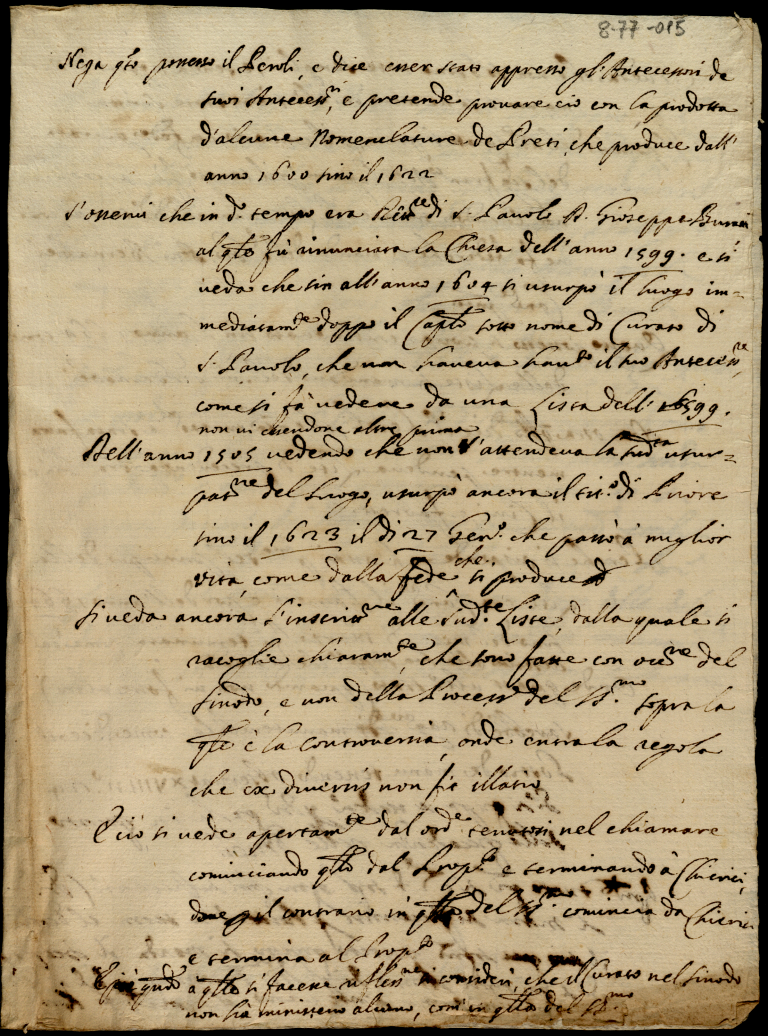 8-77-015
Nega q.to possesso il Peroli, e dice esser stato appresso gl'Antecessori de
suoi Antecess.ri, e pretende provare ciò con la prodotta
d'alcune Nomenclature de Preti, che produce dall'
anno 1600 sino il 1622
S'osservi che in d.o tempo era Rett.re di S. Pauolo D. Gioseppe
al q.le fù rinunciata la Chiesa dell'anno 1599. e si
veda che sin all'anno 1604 si usurpò il luogo im=
mediatam.te doppo il Cap.lo sotto nome di Curato di
S. Pauolo, che non haveva hauto il suo Antecess.re,
come si fà vedere da una Lista dell' 1599.
non vi essendone altre prima
Dell'anno 1505 vedendo che non s'attendeva la sud.ta usur=
pat.ne del luogo, usurpò ancora il tit.o di Priore
sino il 1623 il dì 27 Gen.o che passò à miglior
vita, come dalla fede che si produce
Si veda ancora l'inscritt.ne alle sud.te Liste, dalla quale si
racoglie chiaram.te, che sono fatte con occ.ne del
Sinodo, e non della Process.e del SS.mo sopra la
q.le è la controversia, onde entra la regola
che ex diversis non fit illatio
E ciò si vede apertam.te dal ord.e tenutosi nel chiamare
cominciando q.llo dal Prop.to e terminando à Chierici,
dove p il contrario in q.llo del SS.mo comincia da Chierici
e termina al Prop.to
E più q.ndo à q.llo si facesse refless.ne si consideri, che il Curato nel Sinodo
non hà ministero alcuno, com'in q.llo del SS.mo